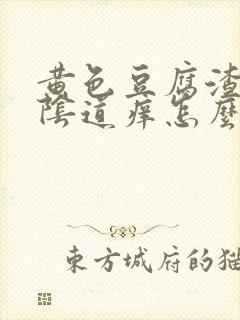 黄色豆腐渣
陰道癢怎麼
東方城府的猫